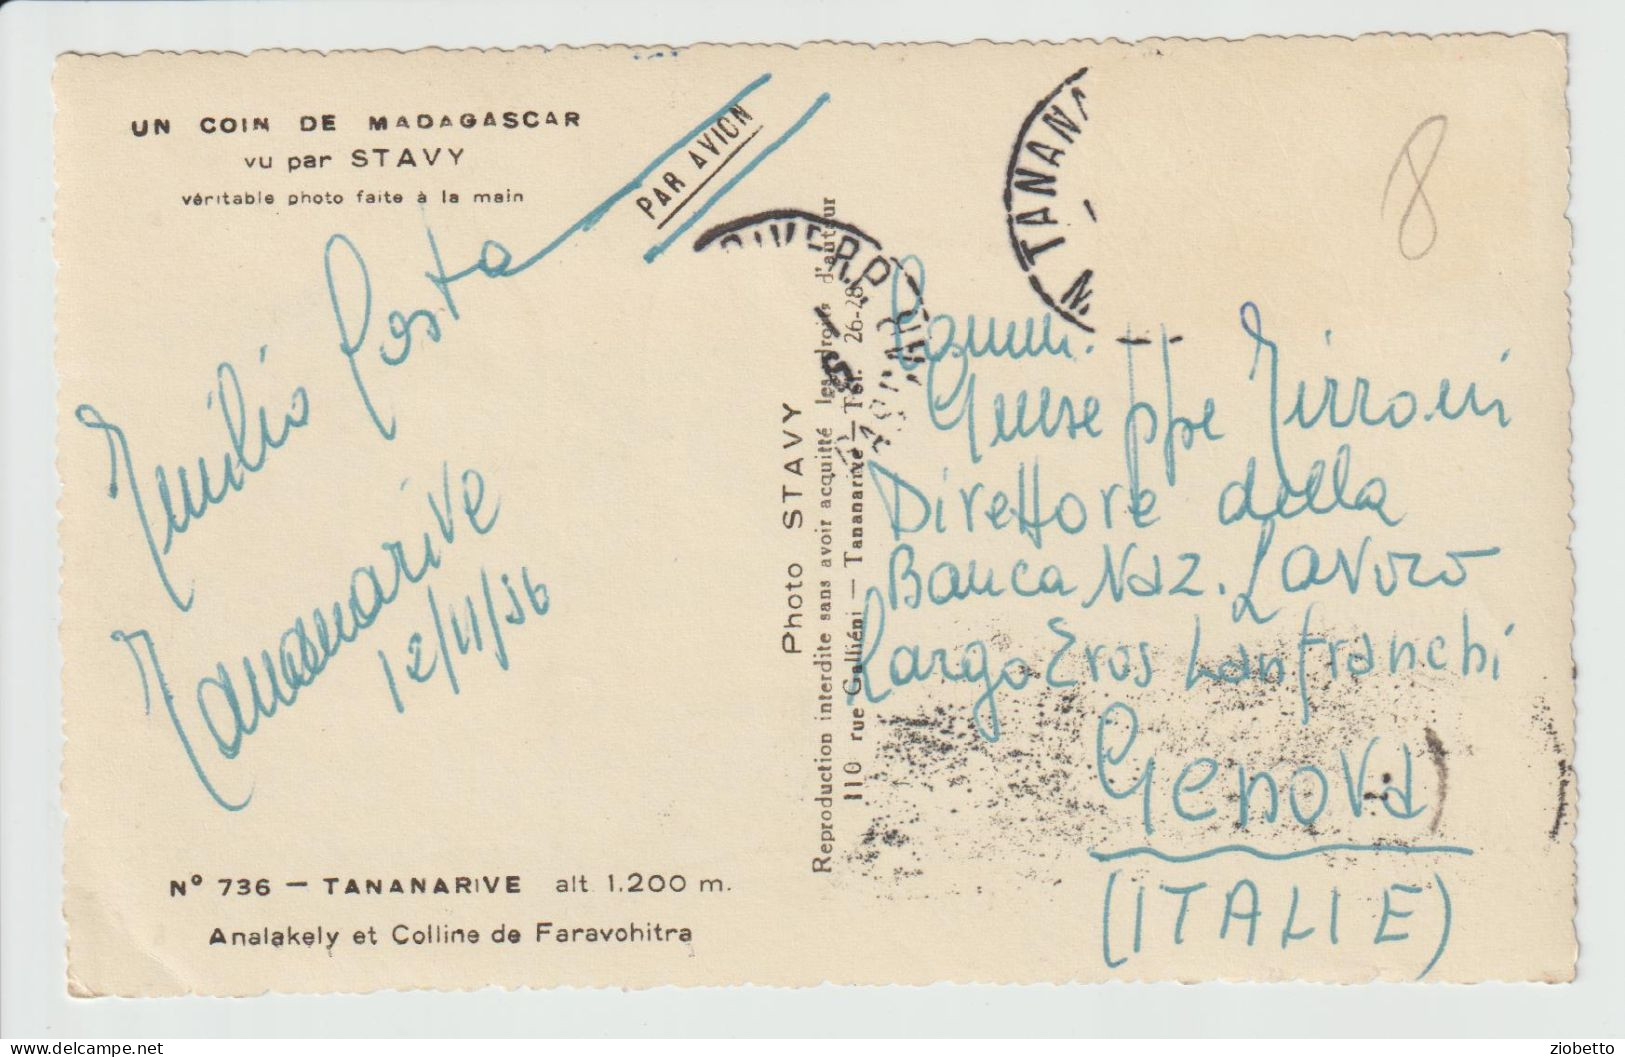 UN COIN DE MADAGASCAR
vu par STAVY
véritable photo faite à la main
PAR AVION
Emilio Costa
Tananarive
12/11/56
N° 736 — TANANARIVE alt 1.200 m.
Analakely et Colline de Faravohitra
Photo STAVY
Reproduction interdite sans avoir acquitté les droits d'auteur
110 rue Galliéni — Tananarive — Tél. 26-28
TANANA
8
Comm.
Giuseppe Zirroni
Direttore della
Banca Naz. Lavoro
Largo Eros Lanfranchi
Genova
(ITALIE)
ziobetto